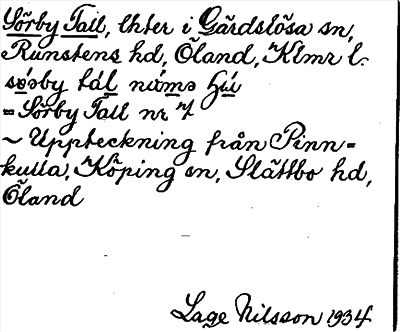 Sörby Tall, lhter i Gärdslösa sn,
Runstens hd, Öland, Klmr l.
söəby tál
= Sörby Tall nr 7
~ Uppteckning från Pinn=
kulla, Köping sn, Slättbo hd,
Öland
Lage Nilsson 1934